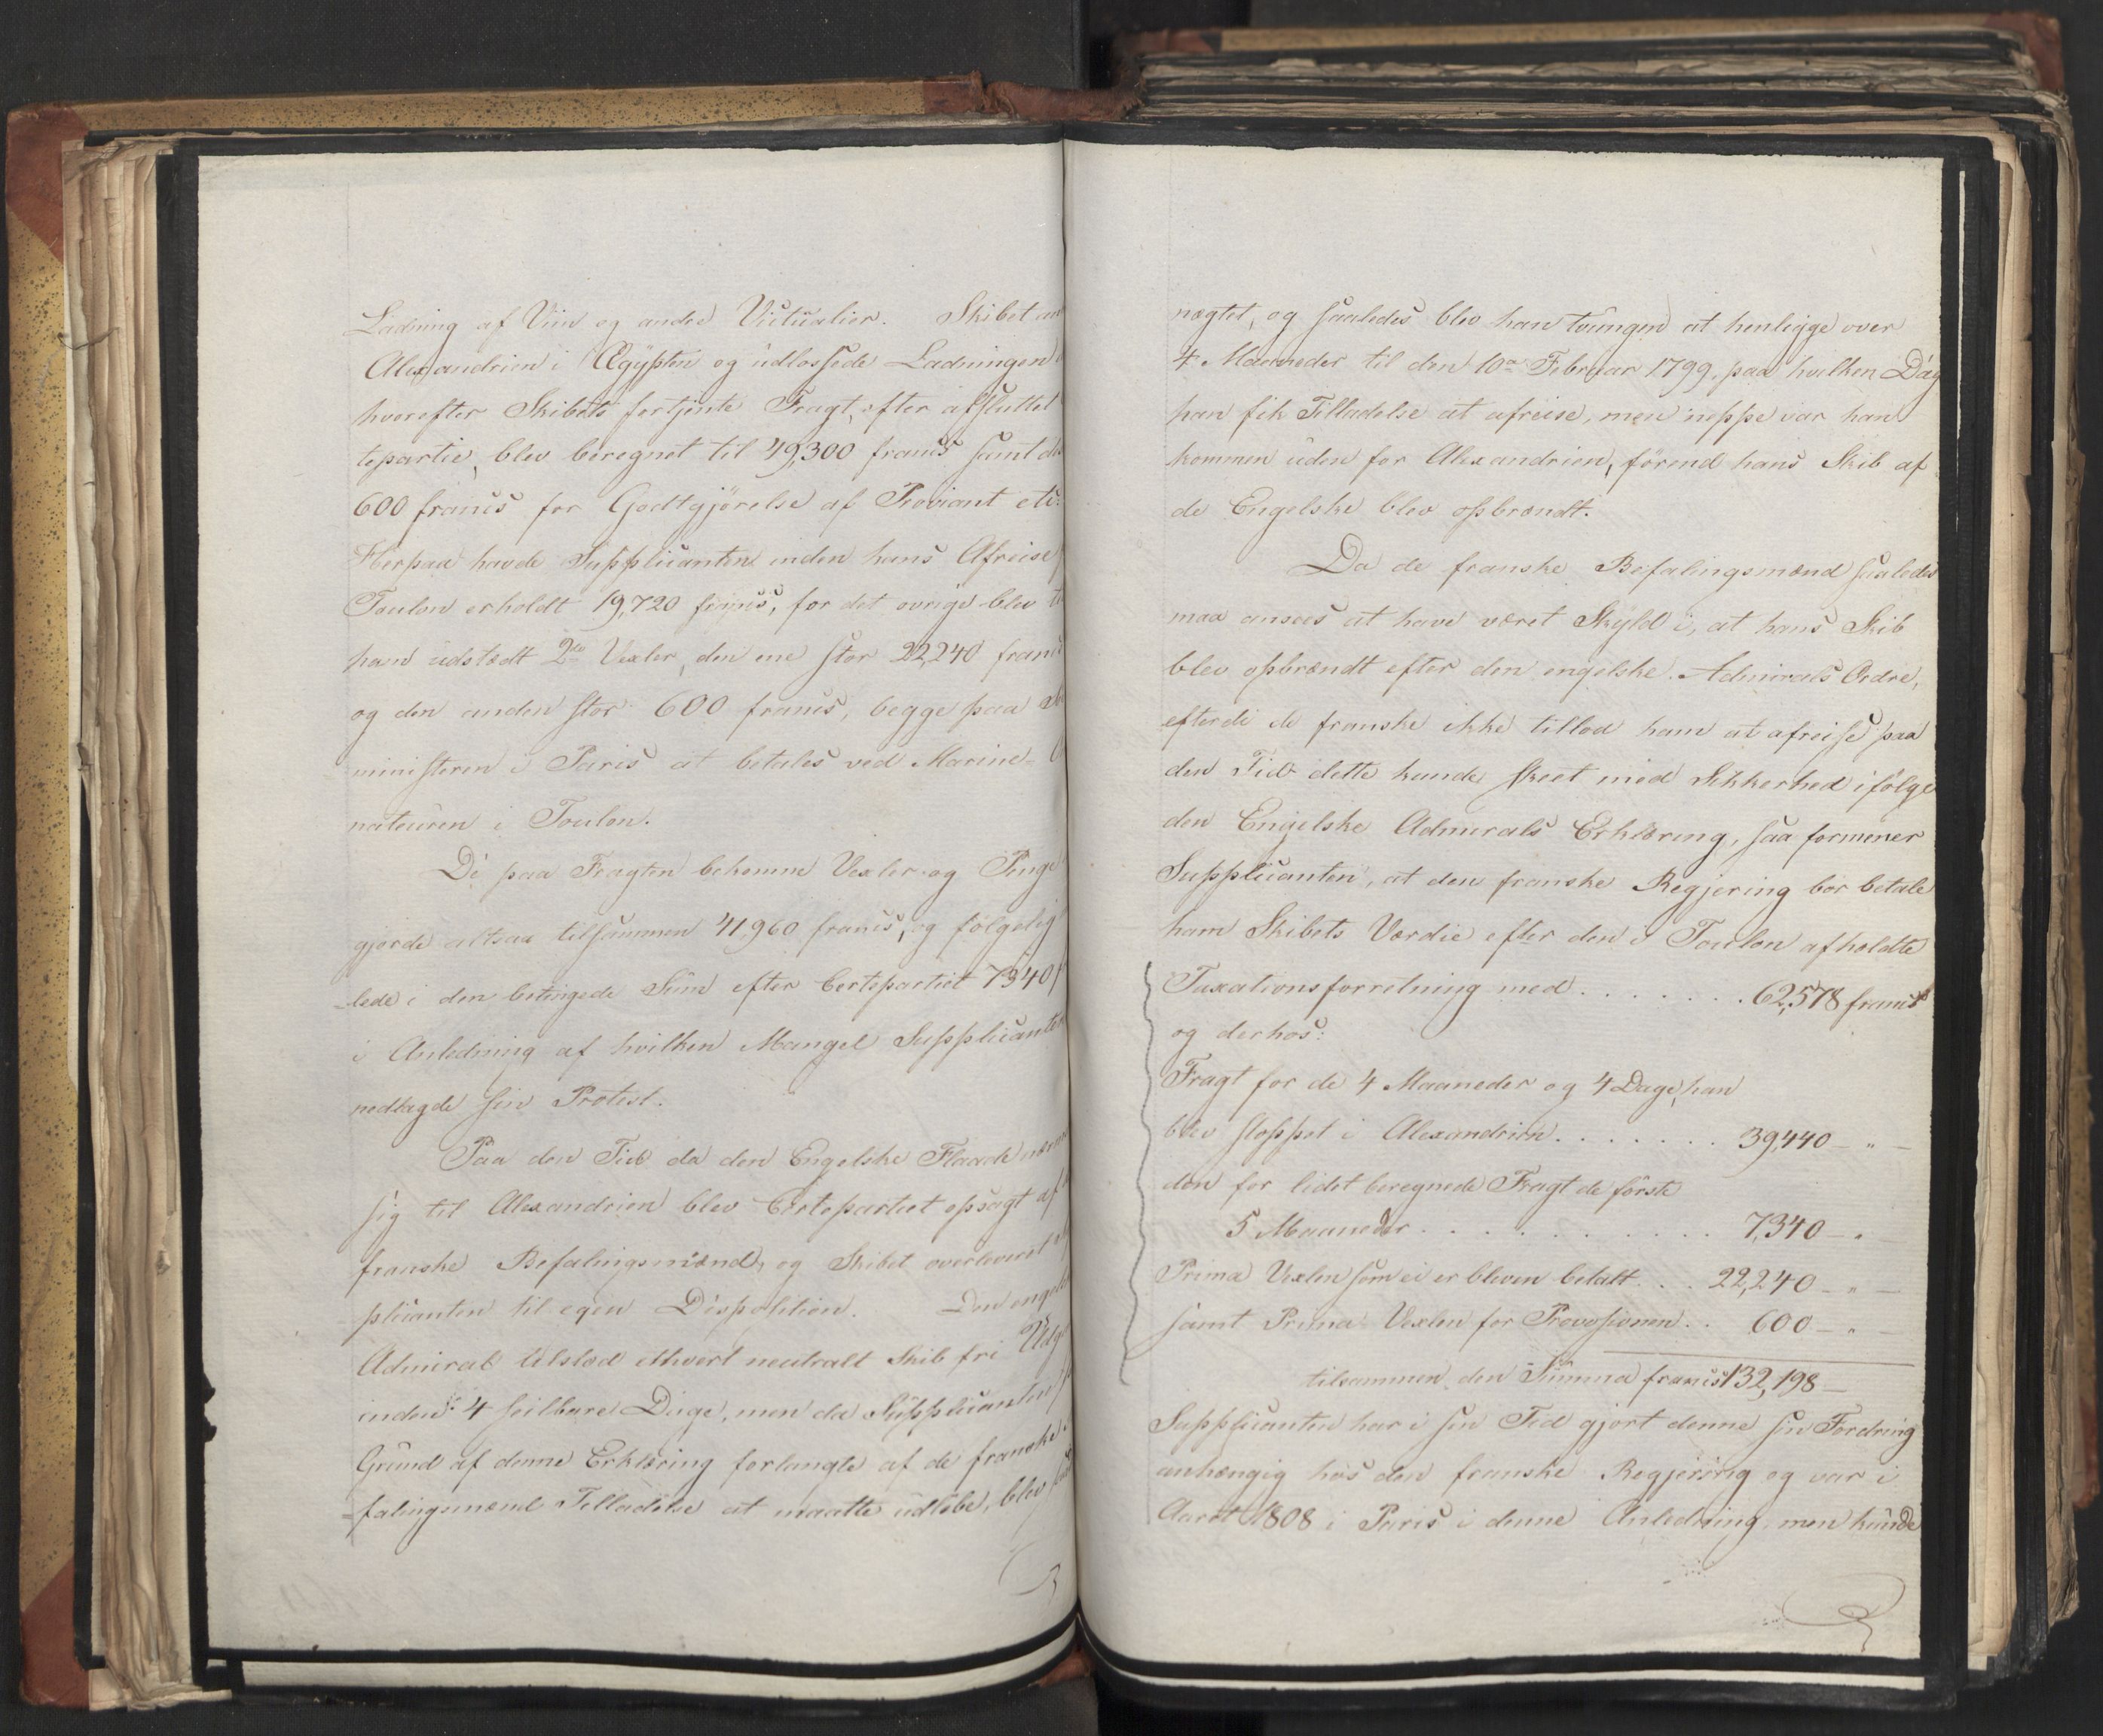 Ladning af Viin og andre Victualier. Skibet an
Alexandrien i Ægypten og udlossede Ladningen
hvorefter Skibets fortjente Fragt, efter afsluttet
tepartie, blev beregnet til 49,300 francs samt de
600 francs for Godtgjörelse af Proviant etc:
Herpaa havde Supplicanten inden hans Afreise
Toulon erholdt 19,720 francs, for det øvrige blev
ham udstædt 2de Vexler, den ene stor 22,240 francs
og den anden stor 600 francs, begge paa
ministeren i Paris at betales ved Marine-
nateuren i Toulon.
De paa Fragten bekomne Vexler og Penge
gjorde altsaa tilsammen 41,960 francs, og fölgelig
lede i den betingede Sum efter Certepartiet 7340
i Anledning af hvilken Mangel Supplicanten
nedlagde sin Protest.
Paa den Tid da den Engelske Flaade nær
sig til Alexandrien blev Certepartiet opsagt af
franske Befalingsmænd, og Skibet overleveret
plicanten til egen Disposition. Den engel
Admiral tilstod ethvert neutralt Skib fri Udg
inden 4 seilbare Dage, men da Supplicanten
Grund af denne Erklæring forlangte af de franske
falingsmænd Tilladelse at maatte udløbe, blev
nægtet, og saaledes blev han tvungen at henligge over
4 Maaneder til den 10de Februar 1799, paa hvilken Dag
han fik Tilladelse at afreise, men neppe var han
kommen uden for Alexandrien, förend hans Skib af
de Engelske blev opbrændt.
Da de franske Befalingsmænd saaledes
maa ansees at have været Skyld i, at hans Skib
blev opbrændt efter den engelske Admirals Ordre,
efterdi de franske ikke tillod ham at afreise paa
den Tid dette kunde skeet med Sikkerhed ifølge
den Engelske Admirals Erklæring, saa formener
Supplicanten, at den franske Regjering bør betale
ham Skibets Værdie efter den i Toulon afholdte
Taxationsforretning med . . . . . . . 62,578 francs
og derhos:
Fragt for de 4 Maaneder og 4 Dage, han
blev stoppet i Alexandrien . . . . . . . 39,440 – " –
den for lidet beregnede Fragt de förste
5 Maaneder . . . . . . . . . . 7,340 – " –
Prima Vexlen som ei er bleven betalt . . . 22,240 – " –
samt Prima Vexlen for Provisionen . . 600 – " –
tilsammen den Summa francs 132,198 –
Supplicanten har i sin Tid gjort denne sin Fordring
anhængig hos den franske Regjering og var i
Aaret 1808 i Paris i denne Anledning, men kunde